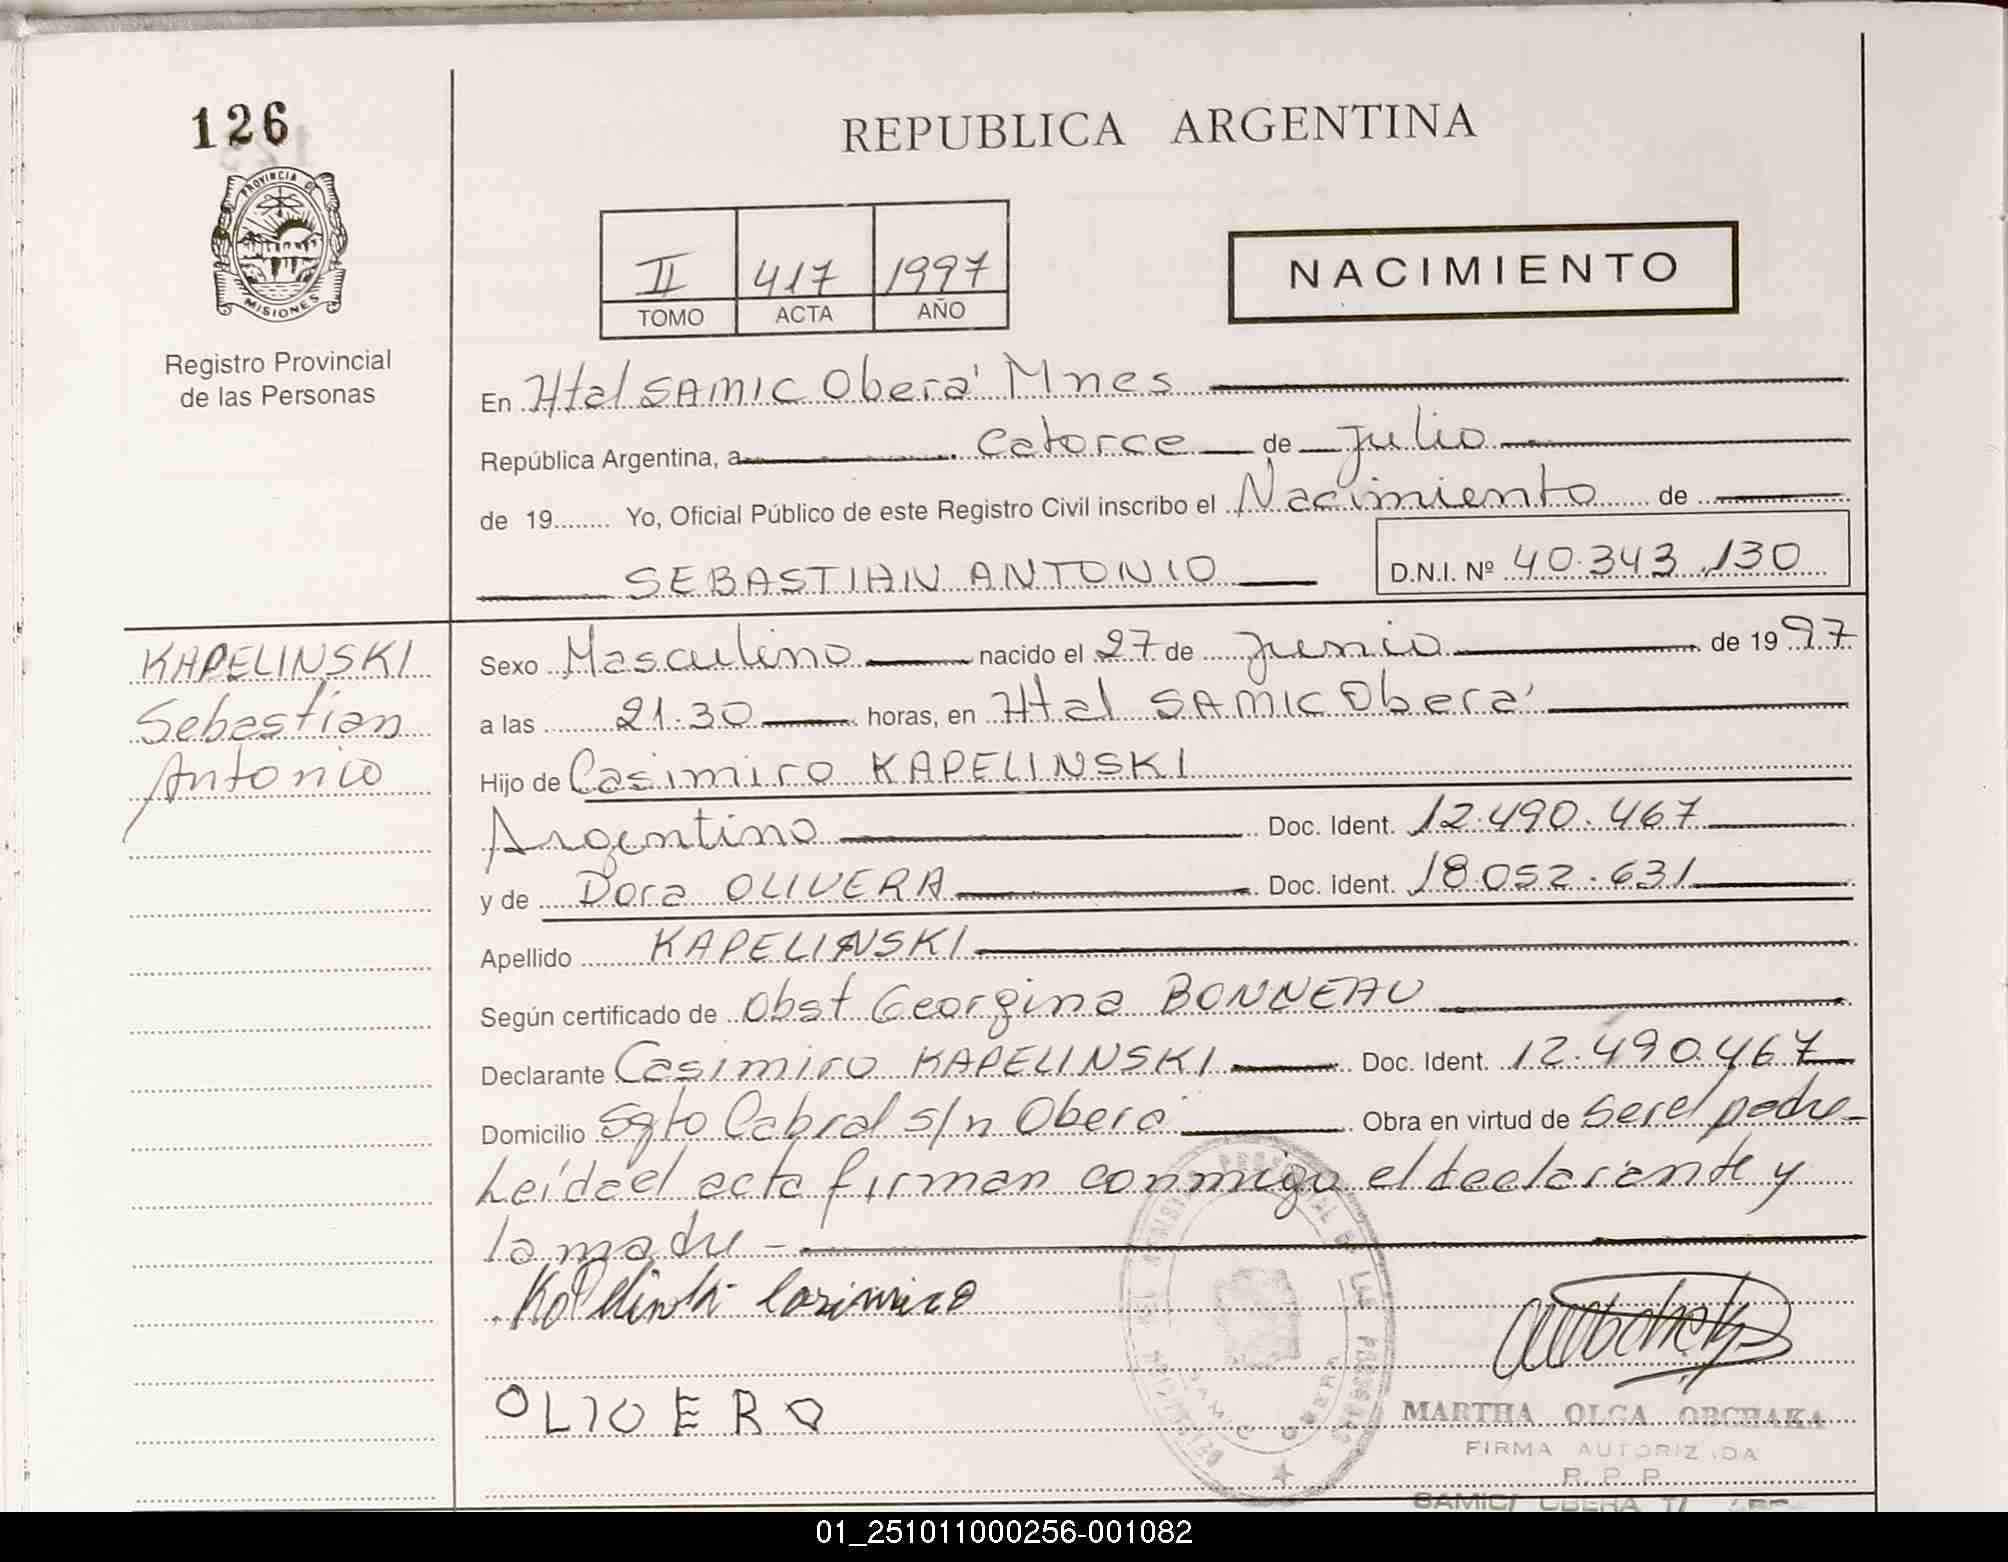 126
REPUBLICA ARGENTINA
PROVINCIA DE
MISIONES
II 417 1997
TOMO ACTA AÑO
NACIMIENTO
Registro Provincial
de las Personas
En Htal SAMIC Oberá Mnes
República Argentina, a catorce de Julio
de 19........ Yo, Oficial Público de este Registro Civil inscribo el Nacimiento de
SEBASTIAN ANTONIO D.N.I. Nº 40.343.130
KAPELINSKI
Sebastian
Antonio
Sexo Masculino nacido el 27 de Junio de 1997
a las 21.30 horas, en Htal SAMIC Oberá
Hijo de Casimiro KAPELINSKI
Argentino Doc. Ident. 12.490.467
y de Dora OLIVERA Doc. Ident. 18.052.631
Apellido KAPELINSKI
Según certificado de Obst Georgina BONNEAU
Declarante Casimiro KAPELINSKI Doc. Ident. 12.490.467
Domicilio Sgto Cabral s/n Oberá Obra en virtud de ser el padre
Leída el acta firman conmigo el declarante y
la madre
Casimiro
MARTHA OLGA ORCHAKA
FIRMA AUTORIZADA
R.P.P.
SAMIC OBERA
01_251011000256-001082